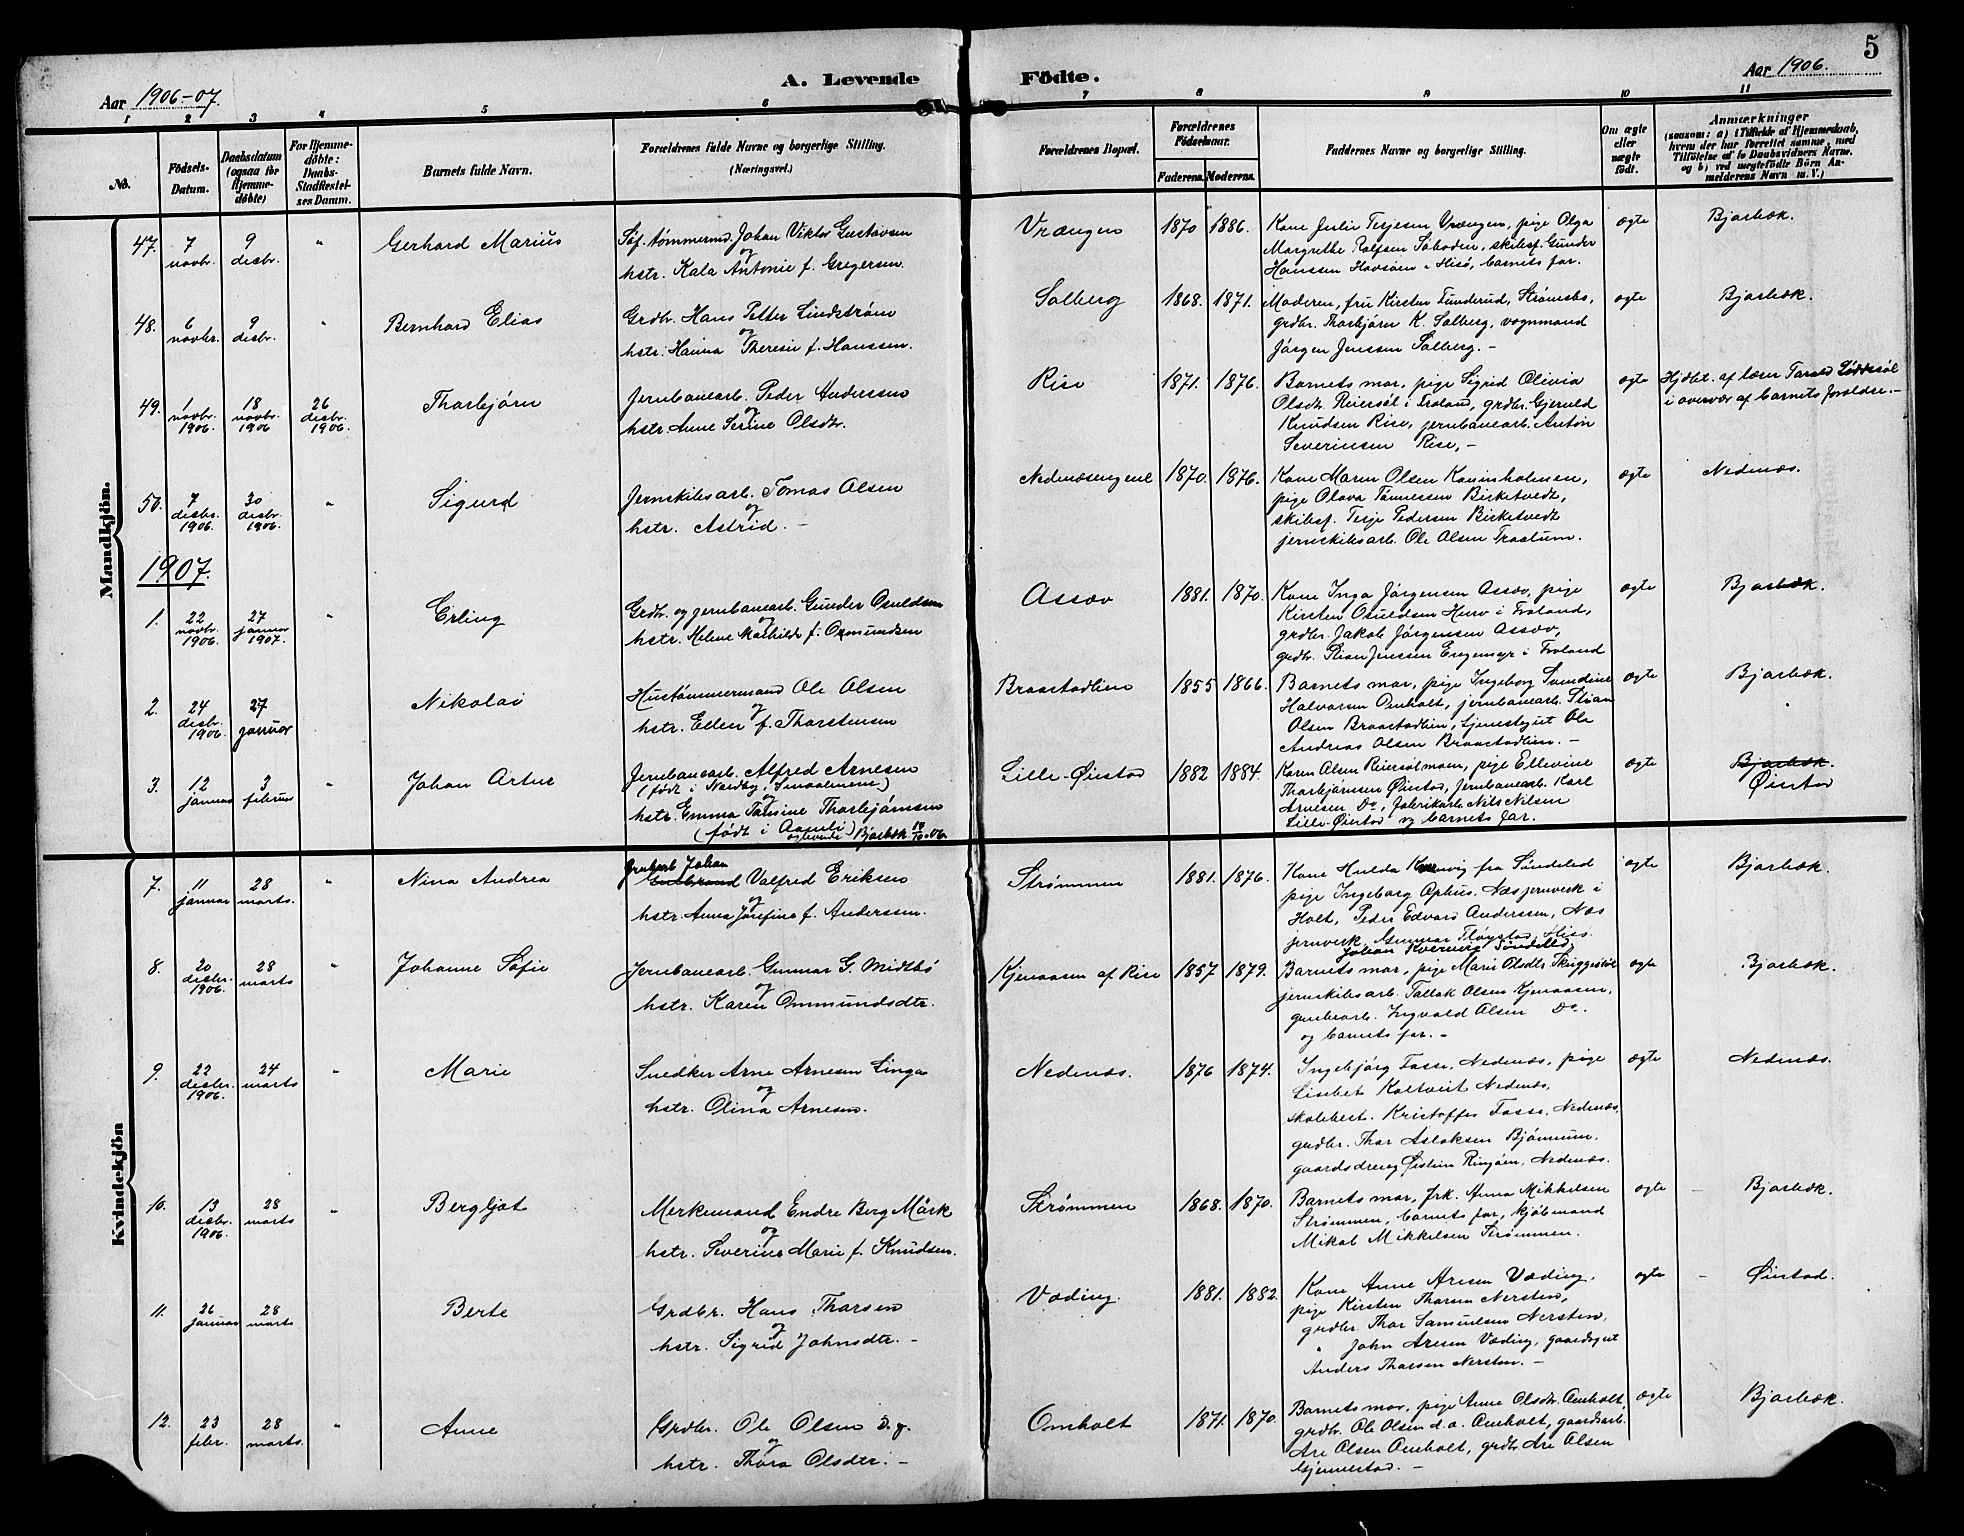 5
A. Levende Födte.
Aar 1906-07.
Aar 1906.
1 2 3 4 5 6 7 8 9 10 11
No.
Födsels-Datum.
Daabsdatum (ogsaa for Hjemmedöbte)
For Hjemmedöbte: Daabs-Stadfestelses Datum.
Barnets fulde Navn.
Forældrenes fulde Navne og borgerlige Stilling. (Næringsvei.)
Forældrenes Bopæl.
Forældrenes Födselsaar.
Faderens. Moderens.
Faddernes Navne og borgerlige Stilling.
Om ægte eller uægte födt.
Anmærkninger
(saasom: a) i Tilfælde af Hjemmedaab,
hvem der har forrettet samme, med
Tilföielse af to Daabsvidners Navne.
og b) ved uægtefödte Börn An-
melderens Navn m. V.)
Mandkjön.
47. 7 novbr. 9 desbr. " Gerhard Marius
Søf. tømmermd. Johan Viktor Gustavsen
og
hstr. Kala Antonie f. Gregersen.
Vrængen 1870 1886.
Kone Julie Terjesen Vrængen, pige Olga
Margrethe Rolfsen Saboden, skibsf. Gunder
Hanssen Havsøen i Hisø, barnets far.
ægte Bjorbæk.
48. 6 novbr. 9 desbr. " Bernhard Elias
Grdbr. Hans Petter Lindstrøm
og
hstr. Hanna Theresie f. Hanssen.
Solberg 1868. 1871.
Moderen, fru Kirsten Tunderud, Strømsbo,
grdbr. Thorbjørn K. Solberg, vognmand
Jørgen Jenssen Solberg. -
ægte Bjorbæk.
49. 1 novbr. 1906 18 novbr. 1906 26 desbr. 1906. Thorbjørn
Jernbanearb. Peder Anderssen
og
hstr. Anne Serine Olsdtr.
Rise 1871. 1876.
Barnets mor, pige Sigrid Olivia
Olsdtr. Reiersøl i Froland, grdbr. Gjeruld
Knudsen Rise, jernbanearb. Anton
Severinsen Rise, -
ægte Hjdbt. af lærer Tarald Løddesøl
i overvær af barnets forældre. -
50. 7 desbr. 1906. 30 desbr. 1906. " Sigurd
Jernskibsarb. Tomas Olsen
og
hstr. Astrid. -
Nedenæsengene 1870. 1876.
Kone Maren Olsen Kaninholmen,
pige Olava Tønnessen Birketvedt,
skibsf. Terje Pedersen Birketvedt
jernskibsarb. Ole Olsen Traatum.
ægte Nedenæs.
1907.
1. 22 novbr. 1906 27 januar 1907. " Erling
Grdbr. og jernbanearb. Gunder Osuldsen
og
hstr. Helene Mathilde f. Osmundsen
Assæv 1881. 1870.
Kone Inga Jørgensen Assæv, pige
Kirsten Osuldsen Heuv i Froland,
grdbr. Jakob Jørgensen Assæv,
grdbr. Stian Jenssen Engemyr i Froland
ægte Bjorbæk.
2. 24 desbr. 1906 27 januar " Nikolai
Hustømmermand Ole Olsen
og
hstr. Ellen f. Thorstensen
Braastadlien 1855 1866.
Barnets mor, pige Ingeborg Svendine
Halvorsen Omholt, jernbanearb. Stian
Olsen Braastadlien, tjenestegut Ole
Andreas Olsen Braastadlien. -
ægte Bjorbæk.
3. 12 januar 3 februar " Johan Artur
Jernbanearb. Alfred Arnesen
(født i Nordby, Smaalenene)
og
hstr. Emma Tomine Thorbjørnsen
(født i Aamli) Bjorbæk 14/10-06
Lille-Øiestad 1882 1884.
Karen Olsen Reiersølmoen, pige Ellevine
Thorbjørnsen Øiestad, Jernbanearb. Karl
Arnesen Do, fabrikarb. Nils Nilsen
Lille-Øiestad og barnets far.
ægte Bjorbæk Øiestad
Kvindekjön
7. 11 januar 28 marts. " Nina Andrea
Grubearb. Johan
Valfred Eriksen
og
hstr. Anna Josefine f. Anderssen.
Strømmen 1881. 1876.
Kone Hulda Kvernvig fra Søndeled
pige Ingeborg Ophus, Næs jernverk i
Holt, Peder Edvard Anderssen, Næs
jernverk, Gunnar Fløystad, Hisø.
Johan Kvernvig Søndeled.
ægte Bjorbæk.
8. 20 desbr. 1906. 28 marts " Johanne Sofie
Jernbanearb. Gunnar G. Midtbø
og
hstr. Karen Ommundsdtr.
Kjenaasen af Rise 1857 1879.
Barnets mor, pige Marie Olsdtr. Skriggestøl
jernskibsarb. Tallak Olsen Kjenaasen,
grubearb. Ingvald Olsen Do.
og barnets far. -
ægte Bjorbæk.
9. 22 desbr. 1906. 24 marts " Marie
Snedker Arne Arnesen Linga
og
hstr. Olina Arnesen.
Nedenæs. 1876 1874.
Ingebjørg Fosse, Nedenæs, pige
Lisebet Kaltveit Nedenæs,
skolebest. Kristoffer Fosse, Nedenæs,
grdbr. Thor Aslaksen Bjønnum.
gaardsdreng Øistein Ringøen, Nedenæs.
ægte Nedenæs.
10. 13 desbr. 1906. 28 marts " Bergljot
Merkemand Endre Berg Mørk
og
hstr. Severine Marie f. Knudsen.
Strømmen 1868. 1870.
Barnets mor, frk. Anna Mikkelsen
Strømmen, barnets far, kjøbmand
Mikal Mikkelsen Strømmen.
ægte - Bjorbæk.
11. 26 januar 28 marts " Berte
Grdbr. Hans Thorsen
og
hstr. Sigrid Johnsdtr. -
Væding. 1881. 1882.
Kone Anne Aresen Væding,
pige Kirsten Thorsen Nersten,
grdbr. Thor Samuelsen Nersten,
" John Aresen Væding, gaardsgut
Anders Thorsen Nersten. -
ægte - Øiestad.
12. 23 febr. 28 marts. " Anne
Grdbr. Ole Olsen d.y.
og
hstr. Thora Olsdtr. -
Omholt 1871. 1870.
Barnets mor, pige Anne Olsdtr. Omholt,
grdbr. Ole Olsen d.æ. Omholt, gaardsarb.
Are Olsen Omholt, grdbr. Are Olsen
Gjennestad. -
ægte Bjorbæk.